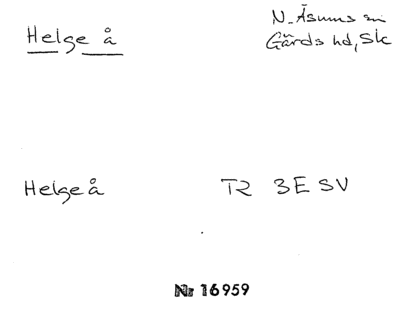 Helge å
N. Åsums sn
Gärds hd, Sk
Helge å
T2 3E SV
Nr 16959